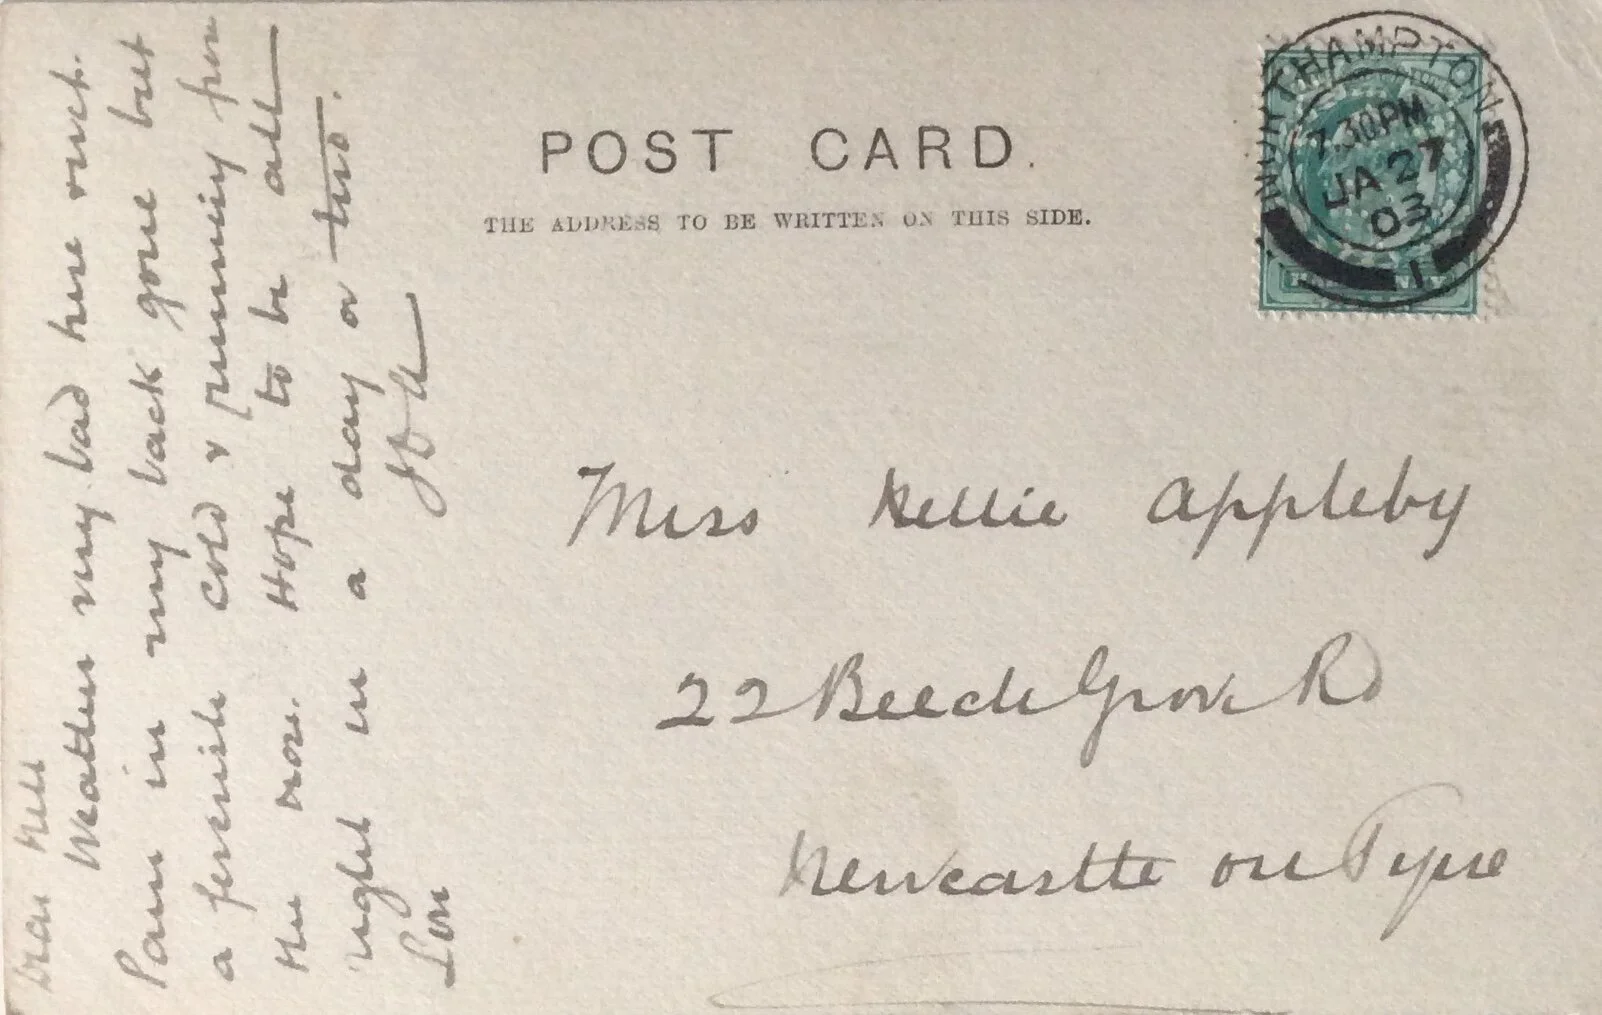 POST CARD.
THE ADDRESS TO BE WRITTEN ON THIS SIDE.
NORTHAMPTON
7.30 PM
JA 27
03
1
Miss Nellie Appleby
22 Beech Grove Rd
Newcastle on Tyne
Dear Nell
Weather very bad here wet.
Pain in my back gone but
a feverish cold & running from
the nose. Hope to be all
right in a day or two.
Love